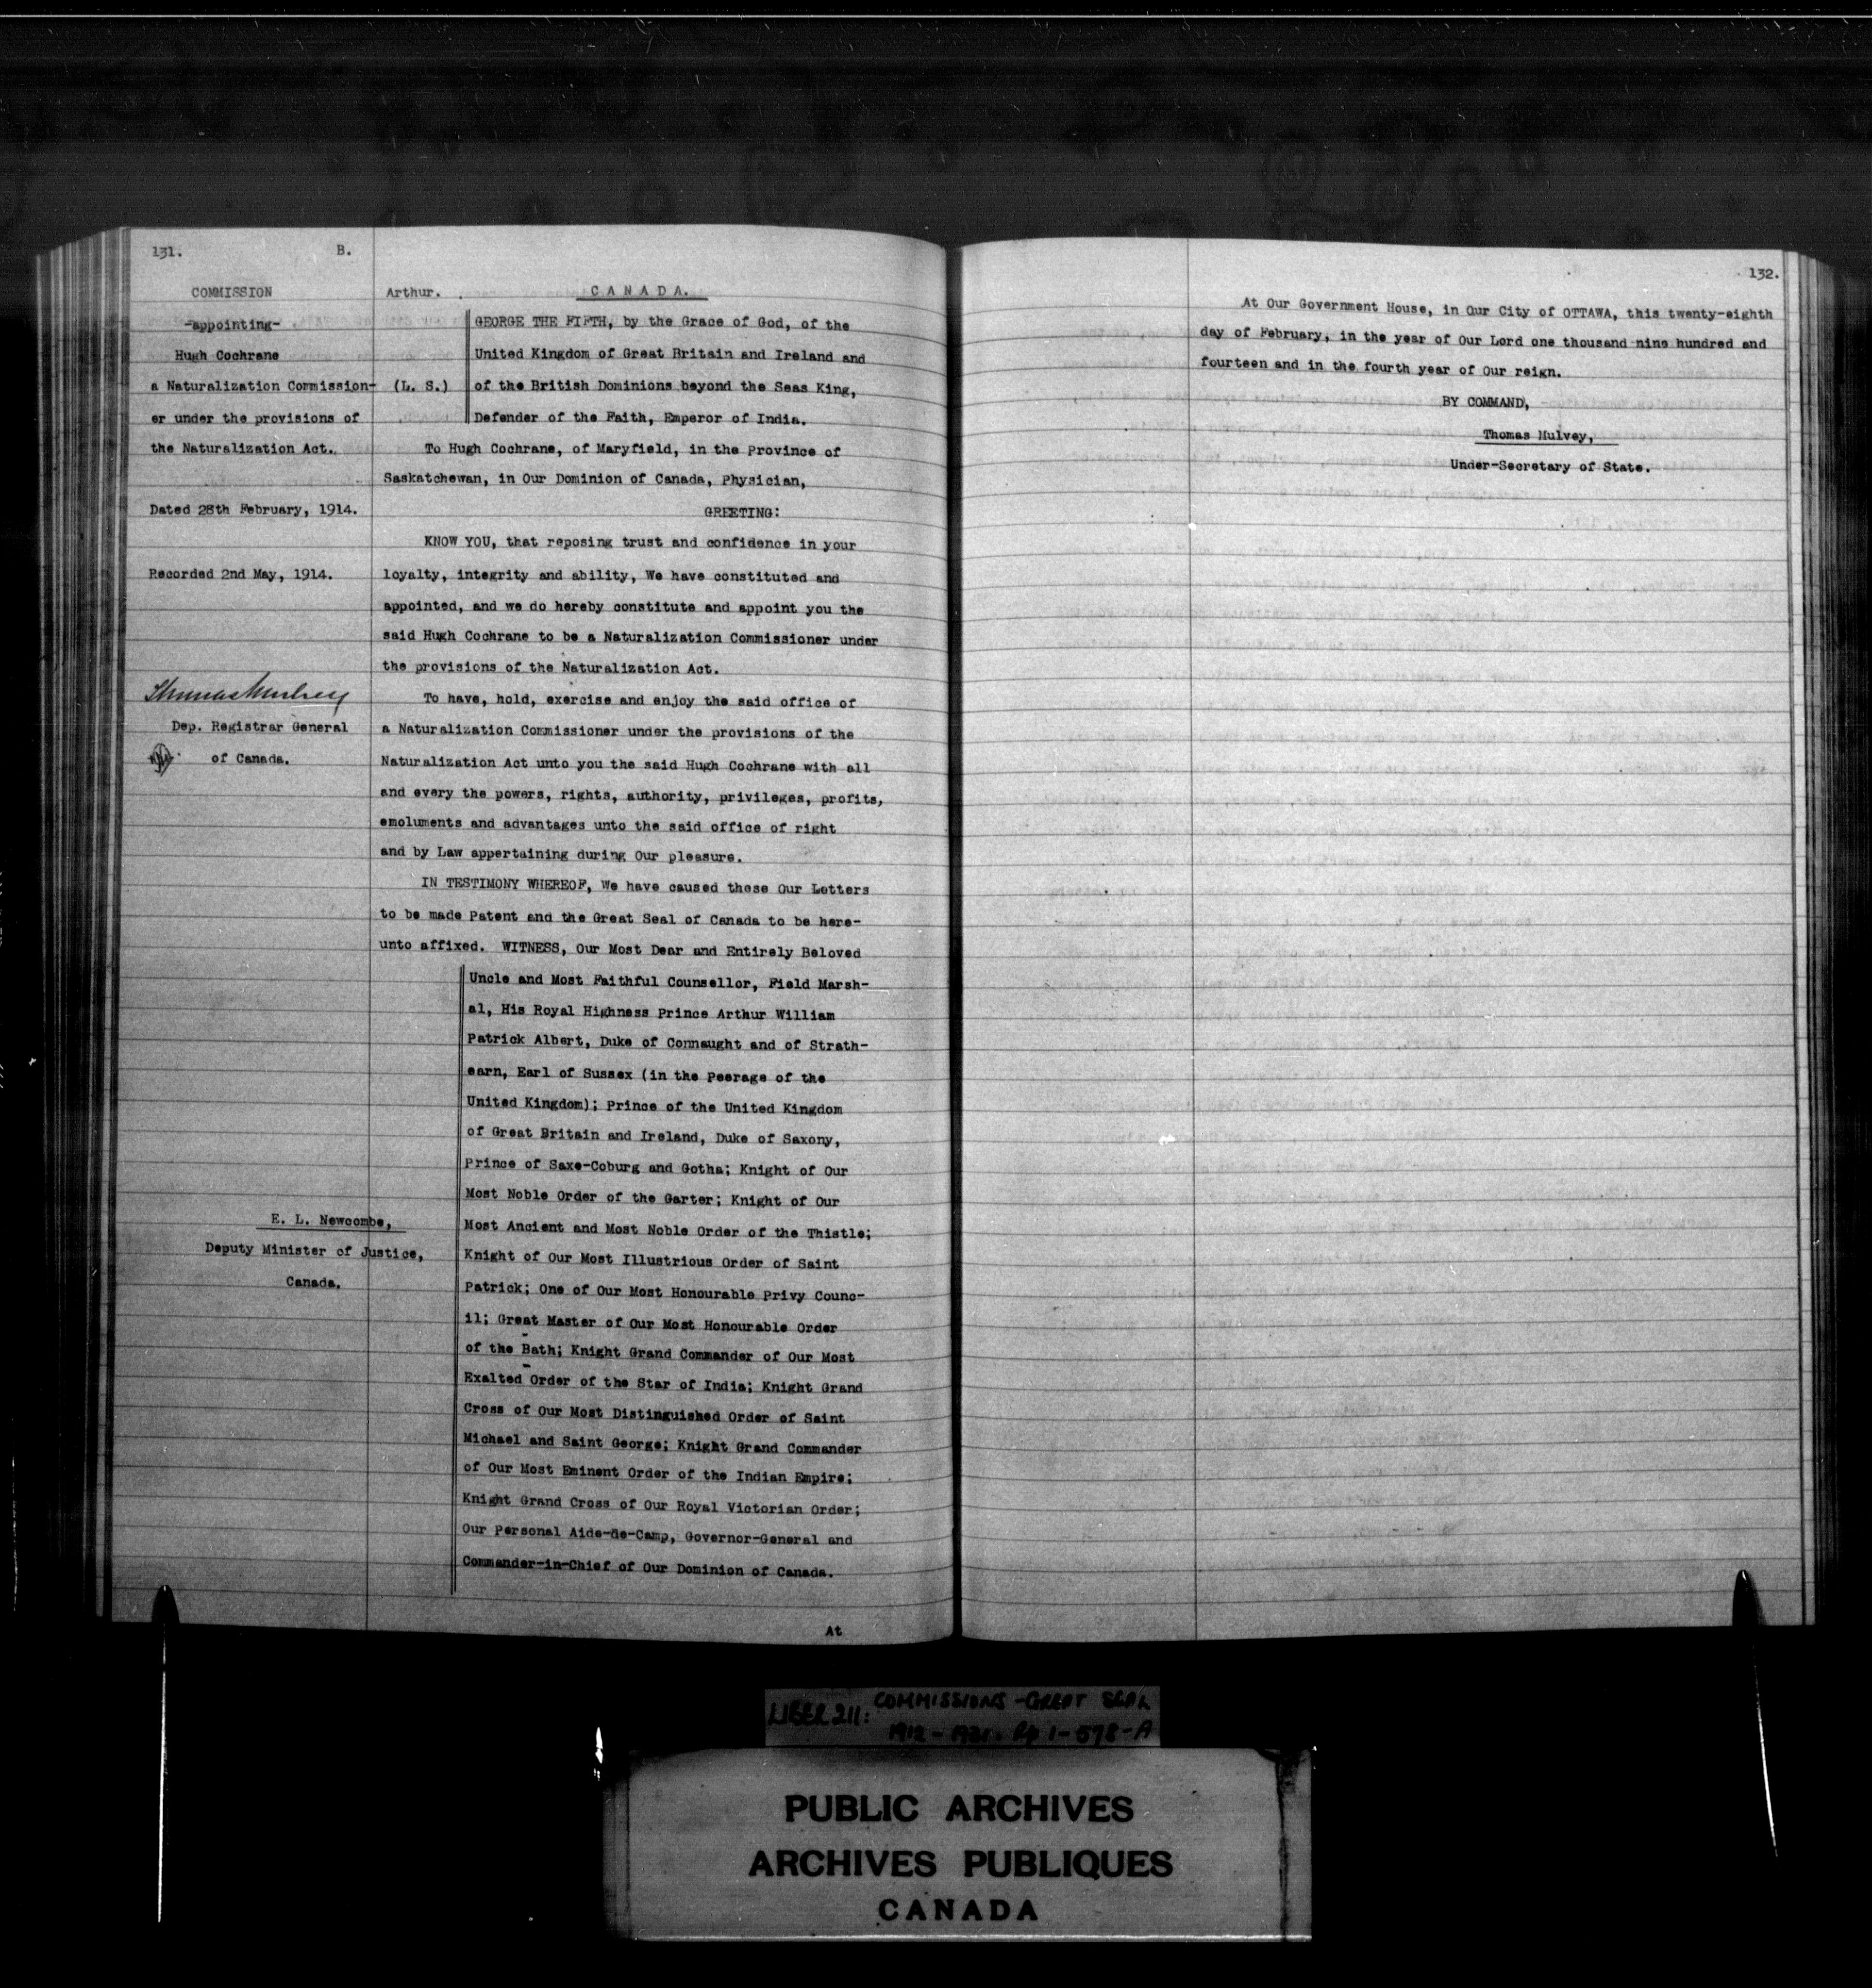 131.
B.
COMMISSION
-appointing-
Hugh Cochrane
a Naturalization Commission-
er under the provisions of
the Naturalization Act.
Dated 28th February, 1914.
Recorded 2nd May, 1914.
Thomas Mulvey
Dep. Registrar General
of Canada.
E. L. Newcombe,
Deputy Minister of Justice,
Canada.
Arthur.
CANADA.
(L. S.)
GEORGE THE FIFTH, by the Grace of God, of the
United Kingdom of Great Britain and Ireland and
of the British Dominions beyond the Seas King,
Defender of the Faith, Emperor of India.
To Hugh Cochrane, of Maryfield, in the Province of
Saskatchewan, in Our Dominion of Canada, Physician,
GREETING:
KNOW YOU, that reposing trust and confidence in your
loyalty, integrity and ability, We have constituted and
appointed, and we do hereby constitute and appoint you the
said Hugh Cochrane to be a Naturalization Commissioner under
the provisions of the Naturalization Act.
To have, hold, exercise and enjoy the said office of
a Naturalization Commissioner under the provisions of the
Naturalization Act unto you the said Hugh Cochrane with all
and every the powers, rights, authority, privileges, profits,
emoluments and advantages unto the said office of right
and by Law appertaining during Our pleasure.
IN TESTIMONY WHEREOF, We have caused these Our Letters
to be made Patent and the Great Seal of Canada to be here-
unto affixed. WITNESS, Our Most Dear and Entirely Beloved
Uncle and Most Faithful Counsellor, Field Marsh-
al, His Royal Highness Prince Arthur William
Patrick Albert, Duke of Connaught and of Strath-
earn, Earl of Sussex (in the Peerage of the
United Kingdom); Prince of the United Kingdom
of Great Britain and Ireland, Duke of Saxony,
Prince of Saxe-Coburg and Gotha; Knight of Our
Most Noble Order of the Garter; Knight of Our
Most Ancient and Most Noble Order of the Thistle;
Knight of Our Most Illustrious Order of Saint
Patrick; One of Our Most Honourable Privy Counc-
il; Great Master of Our Most Honourable Order
of the Bath; Knight Grand Commander of Our Most
Exalted Order of the Star of India; Knight Grand
Cross of Our Most Distinguished Order of Saint
Michael and Saint George; Knight Grand Commander
of Our Most Eminent Order of the Indian Empire;
Knight Grand Cross of Our Royal Victorian Order;
Our Personal Aide-de-Camp, Governor-General and
Commander-in-Chief of Our Dominion of Canada.
At
132.
At Our Government House, in Our City of OTTAWA, this twenty-eighth
day of February, in the year of Our Lord one thousand nine hundred and
fourteen and in the fourth year of Our reign.
BY COMMAND,
Thomas Mulvey,
Under-Secretary of State.
LIBER 211: COMMISSIONS - GREAT SEAL
1912 - 1921. Pp 1-578-A
PUBLIC ARCHIVES
ARCHIVES PUBLIQUES
CANADA